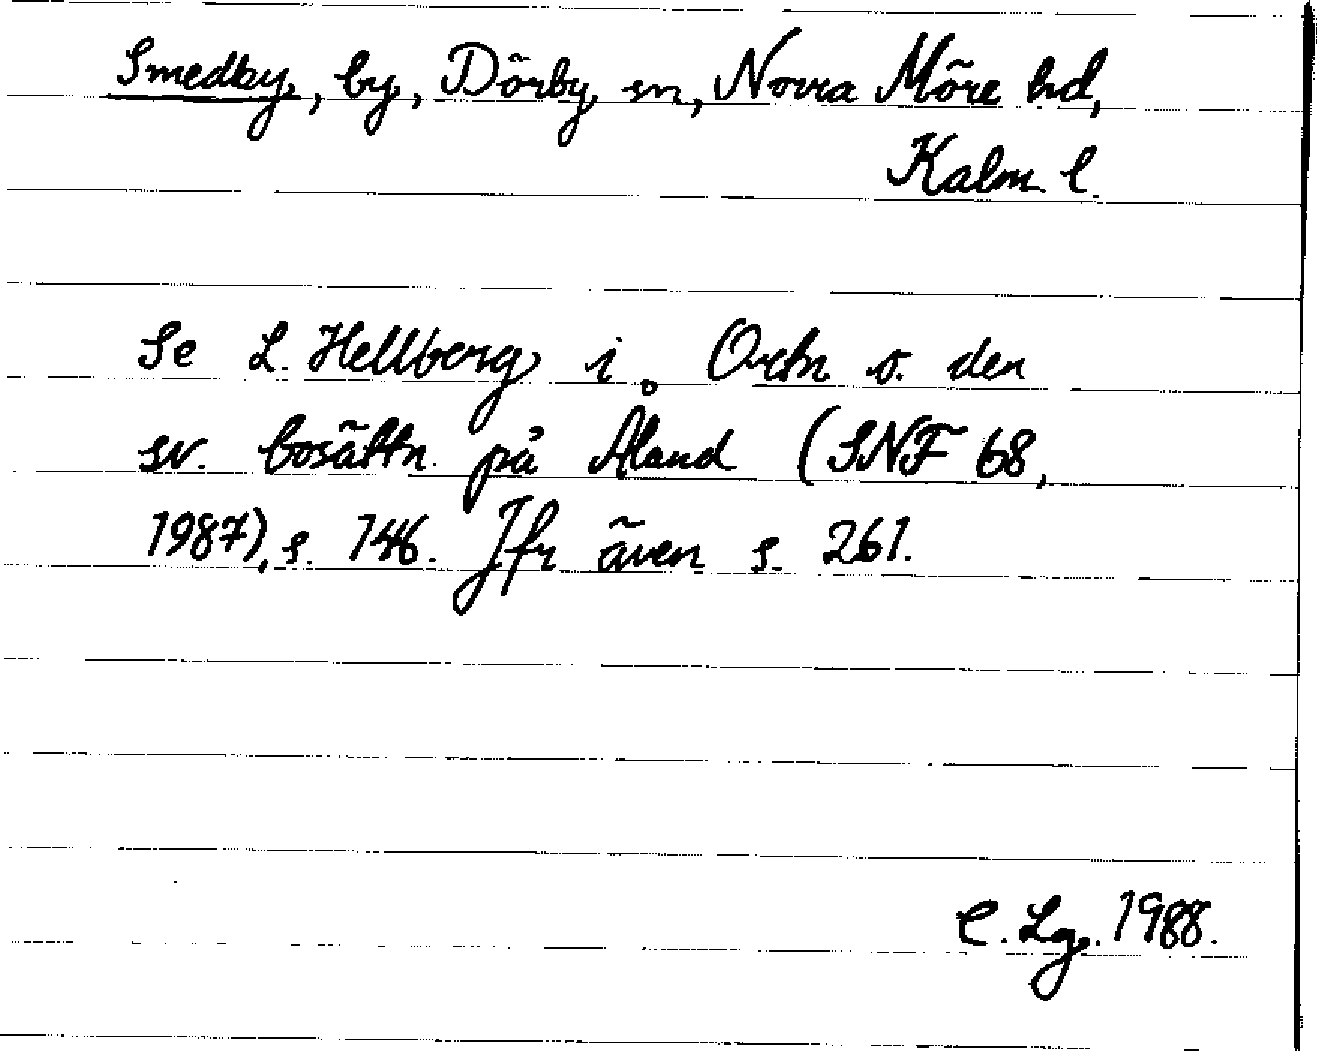 Smedby, by, Dörby sn, Norra Möre hd,
Kalm. l.
Se L. Hellberg i Ortn o. den
sv. bosättn. på Åland (SNF 68,
1987), s. 146. Jfr även s. 261.
C. Lg. 1988.